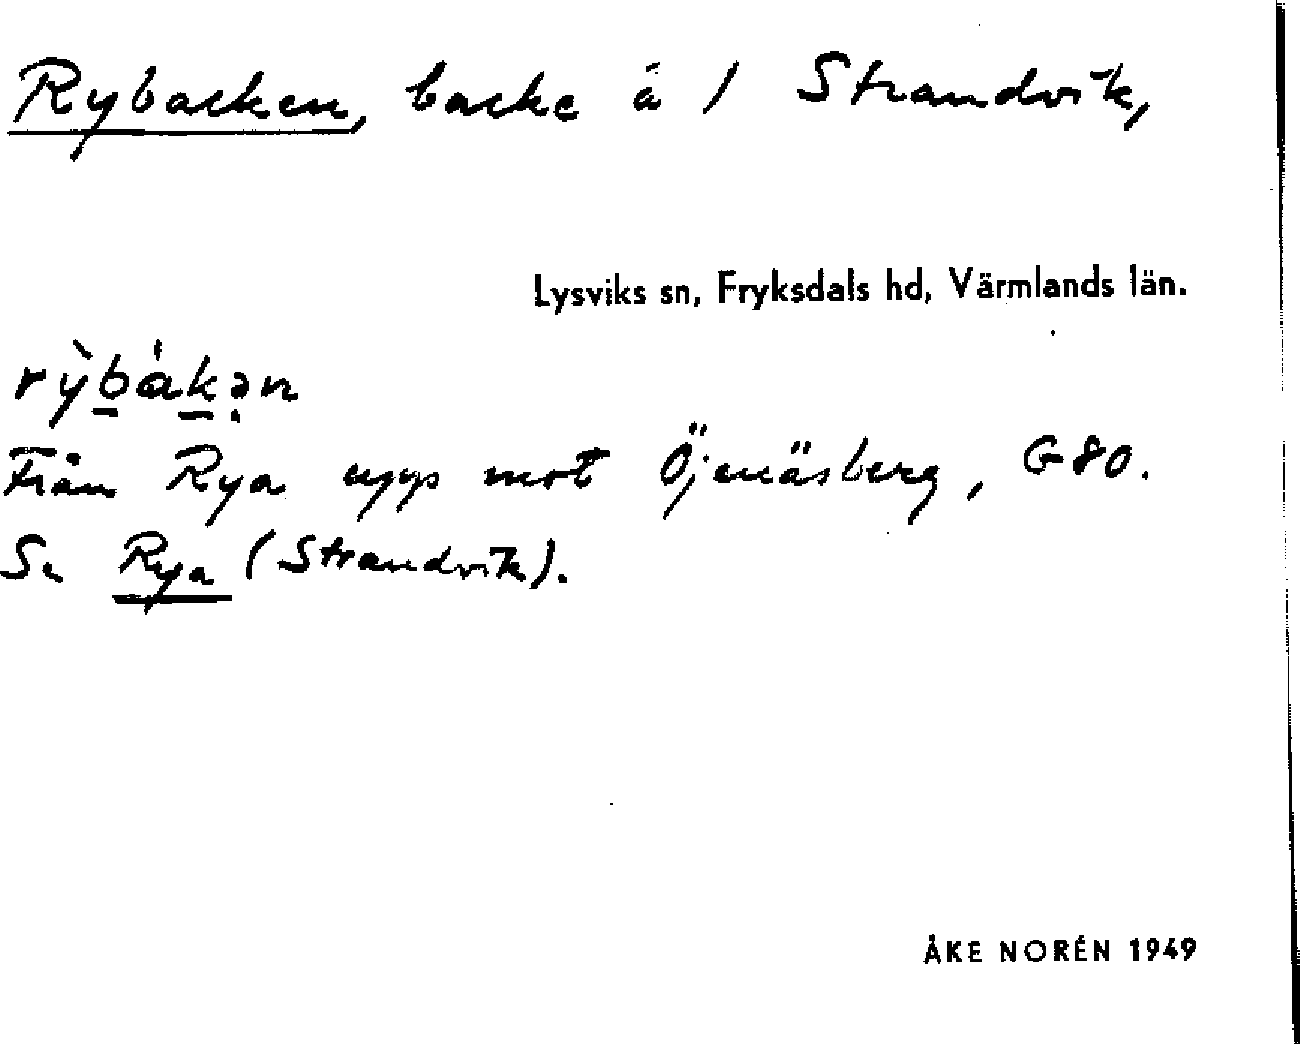 Rybacken, backe å 1 Strandvik,
Lysviks sn, Fryksdals hd, Värmlands län.
rỳbákən
Från Rya upp mot Öjenäsberg, G80.
Se Rya (Strandvik).
ÅKE NORÉN 1949